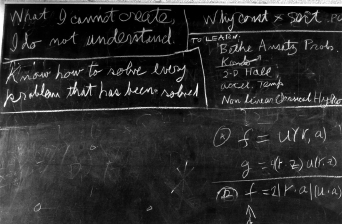 What I cannot create,
I do not understand.
Know how to solve every
problem that has been solved
Why const × sort . PO
TO LEARN:
Bethe Ansatz Probs.
Kondo
2-D Hall
accel. Temp
Non Linear Classical Hydro
f = u(r, a)
g = u(r, z)
f = 2|r·a|(u·a)